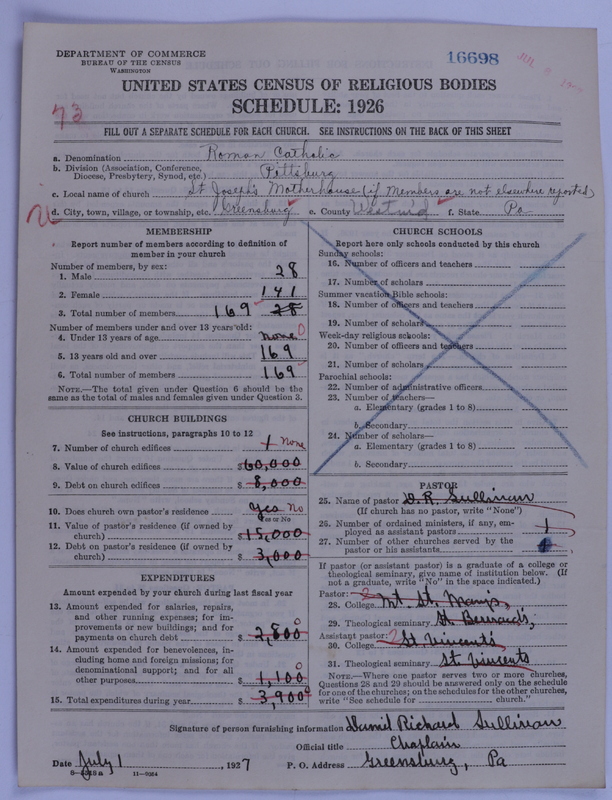 DEPARTMENT OF COMMERCE
BUREAU OF THE CENSUS
WASHINGTON
16698
UNITED STATES CENSUS OF RELIGIOUS BODIES
SCHEDULE: 1926
73
FILL OUT A SEPARATE SCHEDULE FOR EACH CHURCH. SEE INSTRUCTIONS ON THE BACK OF THIS SHEET
a. Denomination Roman Catholic
b. Division (Association, Conference, Diocese, Presbytery, Synod, etc.) Pittsburg
c. Local name of church St Joseph's Motherhouse (if members are not elsewhere reported)
d. City, town, village, or township, etc. Greensburg e. County Westm'd f. State Pa
MEMBERSHIP
Report number of members according to definition of
member in your church
Number of members, by sex:
1. Male 28
2. Female 141
3. Total number of members 169 28
Number of members under and over 13 years old:
4. Under 13 years of age none 0
5. 13 years old and over 169
6. Total number of members 169
NOTE.—The total given under Question 6 should be the
same as the total of males and females given under Question 3.
CHURCH BUILDINGS
See instructions, paragraphs 10 to 12
7. Number of church edifices 1 none
8. Value of church edifices $60,000
9. Debt on church edifices $8,000
10. Does church own pastor's residence? Yes No
Yes or No
11. Value of pastor's residence (if owned by
church) $15,000
12. Debt on pastor's residence (if owned by
church) $3,000
EXPENDITURES
Amount expended by your church during last fiscal year
13. Amount expended for salaries, repairs,
and other running expenses; for im-
provements or new buildings; and for
payments on church debt $2,800 0
14. Amount expended for benevolences, in-
cluding home and foreign missions; for
denominational support; and for all
other purposes $1,100 0
15. Total expenditures during year $3,900 0
CHURCH SCHOOLS
Report here only schools conducted by this church
Sunday schools:
16. Number of officers and teachers
17. Number of scholars
Summer vacation Bible schools:
18. Number of officers and teachers
19. Number of scholars
Week-day religious schools:
20. Number of officers and teachers
21. Number of scholars
Parochial schools:
22. Number of administrative officers
23. Number of teachers—
a. Elementary (grades 1 to 8)
b. Secondary
24. Number of scholars—
a. Elementary (grades 1 to 8)
b. Secondary
PASTOR
25. Name of pastor D. R. Sullivan
(If church has no pastor, write "None")
26. Number of ordained ministers, if any, em-
ployed as assistant pastors 1
27. Number of other churches served by the
pastor or his assistants
If pastor (or assistant pastor) is a graduate of a college or
theological seminary, give name of institution below. (If
not a graduate, write "No" in the space indicated.)
Pastor:
28. College Mt. St. Mary's,
29. Theological seminary St Bernard's,
Assistant pastor:
30. College St Vincent's
31. Theological seminary St Vincents
NOTE.—Where one pastor serves two or more churches,
Questions 28 and 29 should be answered only on the schedule
for one of the churches; on the schedules for the other churches,
write "See schedule for church."
Signature of person furnishing information Daniel Richard Sullivan
Official title Chaplain
Date July 1, 1927 P. O. Address Greensburg, Pa
11-9054